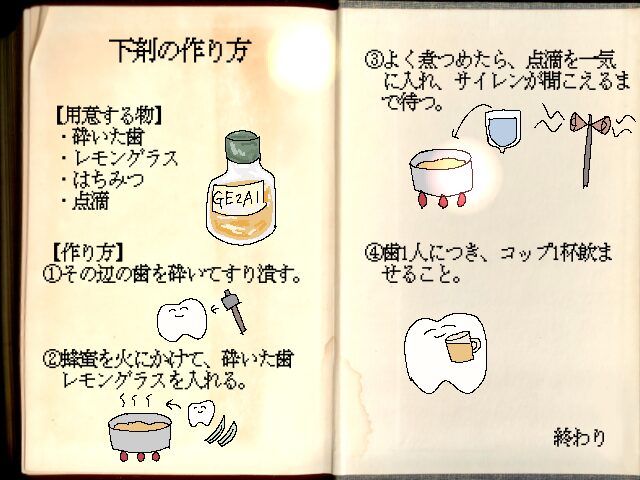 下剤の作り方
【用意する物】
・砕いた歯
・レモングラス
・はちみつ
・点滴
GEZAI
【作り方】
①その辺の歯を砕いてすり潰す。
②蜂蜜を火にかけて、砕いた歯
レモングラスを入れる。
③よく煮つめたら、点滴を一気
に入れ、サイレンが聞こえるま
で待つ。
④歯1人につき、コップ1杯飲ま
せること。
終わり